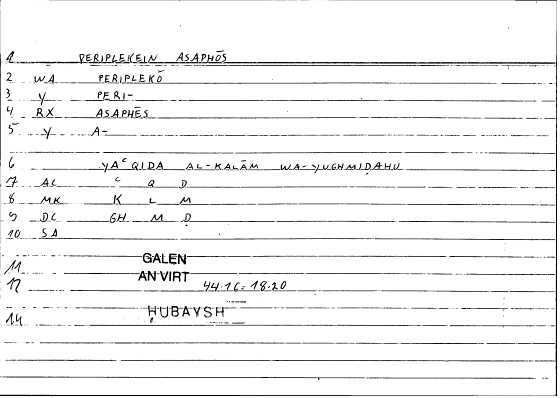 1 PERIPLEKEIN ASAPHŌS
2 WA PERIPLEKŌ
3 Y PERI-
4 RX ASAPHĒS
5 Y A-
6 YAᶜQIDA AL-KALĀM WA-YUGHMIḌAHU
7 AC ᶜ Q D
8 MK K L M
9 DC GH M Ḍ
10 SA
11 GALEN
12 AN VIRT 44.16 = 18.20
14 ḤUBAYSH